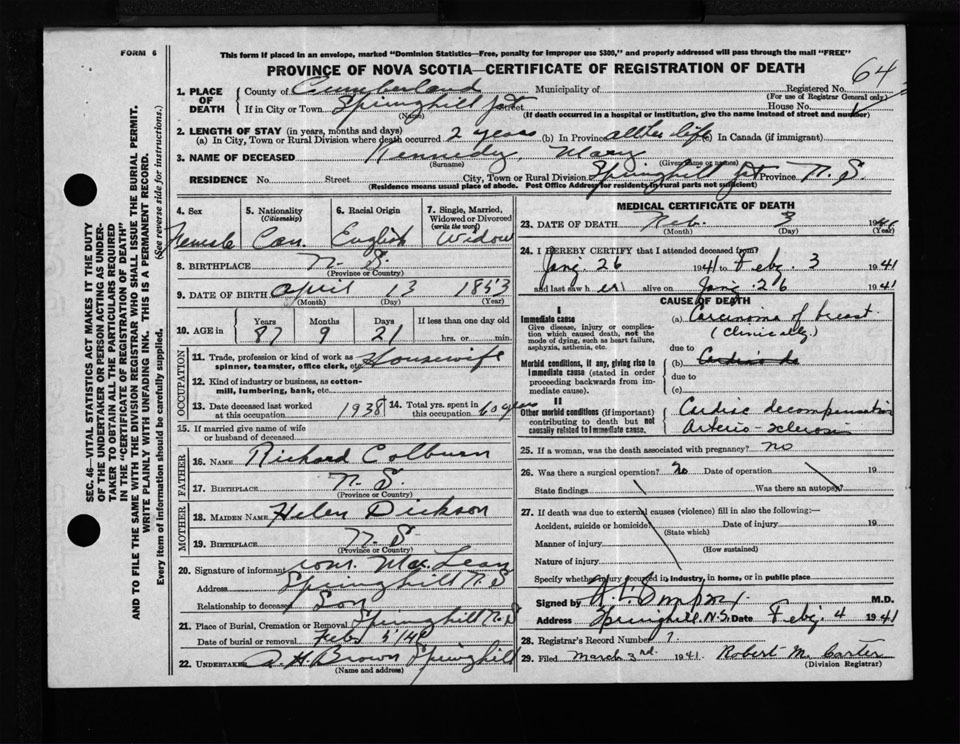 FORM 6
This form if placed in an envelope, marked "Dominion Statistics—Free, penalty for improper use $300," and properly addressed will pass through the mail "FREE"
PROVINCE OF NOVA SCOTIA—CERTIFICATE OF REGISTRATION OF DEATH
64
1. PLACE OF DEATH
County of Cumberland Municipality of Registered No.
(For use of Registrar General only)
If in City or Town Springhill Jct Street House No.
(Name) (If death occurred in a hospital or institution, give the name instead of street and number)
2. LENGTH OF STAY (in years, months and days)
(a) In City, Town or Rural Division where death occurred 2 years (b) In Province all her life (c) In Canada (if immigrant)
3. NAME OF DECEASED Kennedy, Mary
(Surname) (Given name or names)
RESIDENCE No. Street City, Town or Rural Division Springhill Jct Province N. S.
(Residence means usual place of abode. Post Office Address for residents in rural parts not sufficient)
4. Sex Female
5. Nationality (Citizenship) Can.
6. Racial Origin English
7. Single, Married, Widowed or Divorced (write the word) Widow
8. BIRTHPLACE N. S.
(Province or Country)
9. DATE OF BIRTH April 13 1853
(Month) (Day) (Year)
10. AGE in Years Months Days If less than one day old
87 9 21 hrs. or min.
OCCUPATION
11. Trade, profession or kind of work as spinner, teamster, office clerk, etc. Housewife
12. Kind of industry or business, as cotton-mill, lumbering, bank, etc.
13. Date deceased last worked at this occupation 1938 14. Total yrs. spent in this occupation 60 years
15. If married give name of wife or husband of deceased
FATHER
16. NAME Richard Colburn
17. BIRTHPLACE N. S.
(Province or Country)
MOTHER
18. MAIDEN NAME Helen Dickson
19. BIRTHPLACE N. S.
(Province or Country)
20. Signature of informant Wm. MacLean
Address Springhill N. S
Relationship to deceased Son
21. Place of Burial, Cremation or Removal Springhill N. S
Date of burial or removal Feb
22. UNDERTAKER A. H. Brown Springhill
(Name and address)
MEDICAL CERTIFICATE OF DEATH
23. DATE OF DEATH Feb. 3
(Month) (Day) (Year)
24. I HEREBY CERTIFY that I attended deceased from
Jany. 26 1941 to Feby. 3 1941
and last saw her alive on Jany. 26 1941
CAUSE OF DEATH
I
Immediate cause
Give disease, injury or complication which caused death, not the mode of dying, such as heart failure, asphyxia, asthenia, etc.
(a) Carcinoma of breast
(Clinically)
due to
Morbid conditions, if any, giving rise to immediate cause (stated in order proceeding backwards from immediate cause).
(b)
due to
(c)
II
Other morbid conditions (if important) contributing to death but not causally related to immediate cause.
Cardiac decompensation
Arterio-sclerosis
25. If a woman, was the death associated with pregnancy? no
26. Was there a surgical operation? no Date of operation 19
State findings Was there an autopsy?
27. If death was due to external causes (violence) fill in also the following:—
Accident, suicide or homicide? Date of injury 19
(State which)
Manner of injury
(How sustained)
Nature of injury
Specify whether injury occurred in industry, in home, or in public place
Signed by M.D.
Address Springhill, N.S. Date Feby. 4 1941
28. Registrar's Record Number 7.
29. Filed March 3rd 1941 Robert M. Carter
(Division Registrar)
SEC. 46—VITAL STATISTICS ACT MAKES IT THE DUTY
OF THE UNDERTAKER OR PERSON ACTING AS UNDER-
TAKER TO OBTAIN ALL THE PARTICULARS REQUIRED
IN THE "CERTIFICATE OF REGISTRATION OF DEATH"
AND TO FILE THE SAME WITH THE DIVISION REGISTRAR WHO SHALL ISSUE THE BURIAL PERMIT.
WRITE PLAINLY WITH UNFADING INK. THIS IS A PERMANENT RECORD.
Every item of information should be carefully supplied. (See reverse side for instructions.)